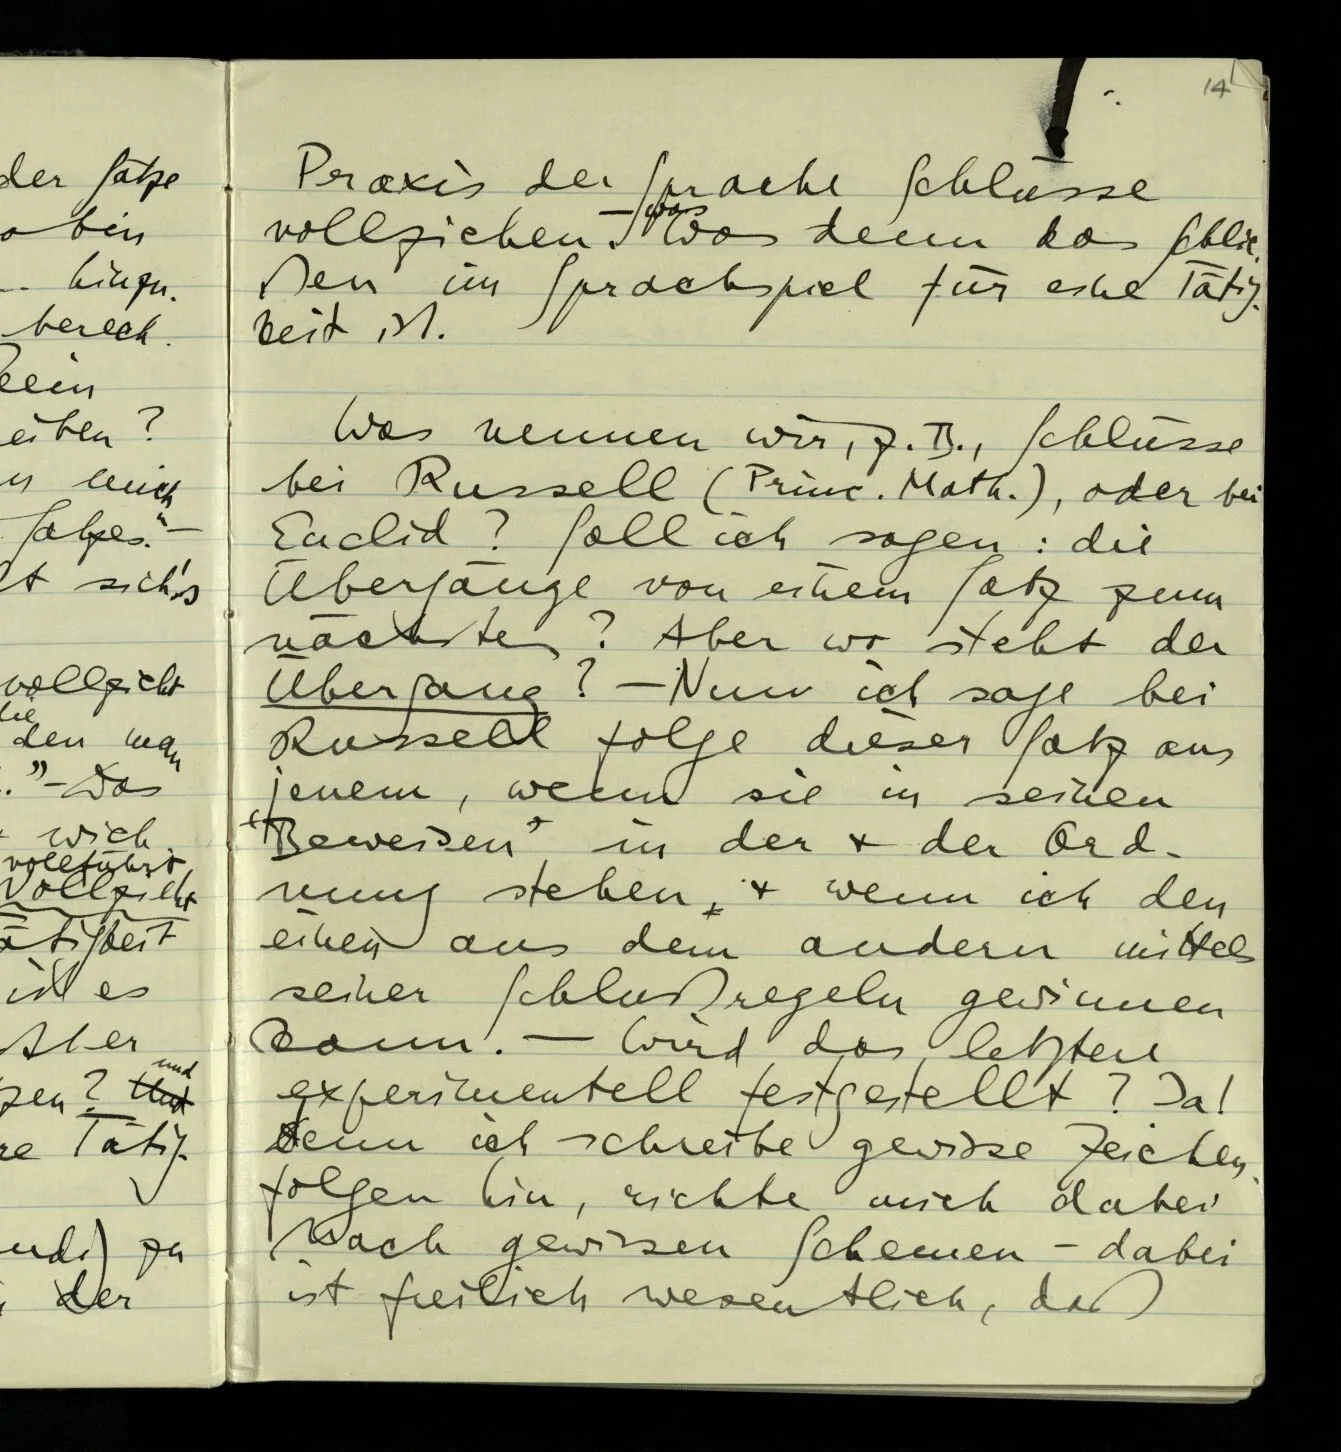 der Sätze
bin
hinzu-
berech-
eiben?
mich
Satzes."—
t sich's
vollzieht
die
den man
."– Das
wich
vollführt
vollzieht
ätigkeit
ist es
Aber
und
zen? Und
re Tätig-
zu
der
14
Praxis der Sprache Schlüsse
was
vollziehen. — Was denn das Schlie-
ßen im Sprachspiel für eine Tätig-
keit ist.
Was nennen wir, z.B., Schlüsse
bei Russell (Princ. Math.), oder bei
Euclid? Soll ich sagen: die
Übergänge von einem Satz zum
nächsten? Aber wo steht der
Übergang? – Nun ich sage bei
Russell folge dieser Satz aus
jenem, wenn sie in seinen
"Beweisen" in der + der Ord-
nung stehen, + wenn ich den
einen aus dem andern mittels
seiner Schlußregeln gewinnen
kann. — Wird das letztere
experimentell festgestellt? Ja!
Denn ich schreibe gewisse Zeichen-
folgen hin, richte mich dabei
nach gewissen Schemen – dabei
ist freilich wesentlich, daß